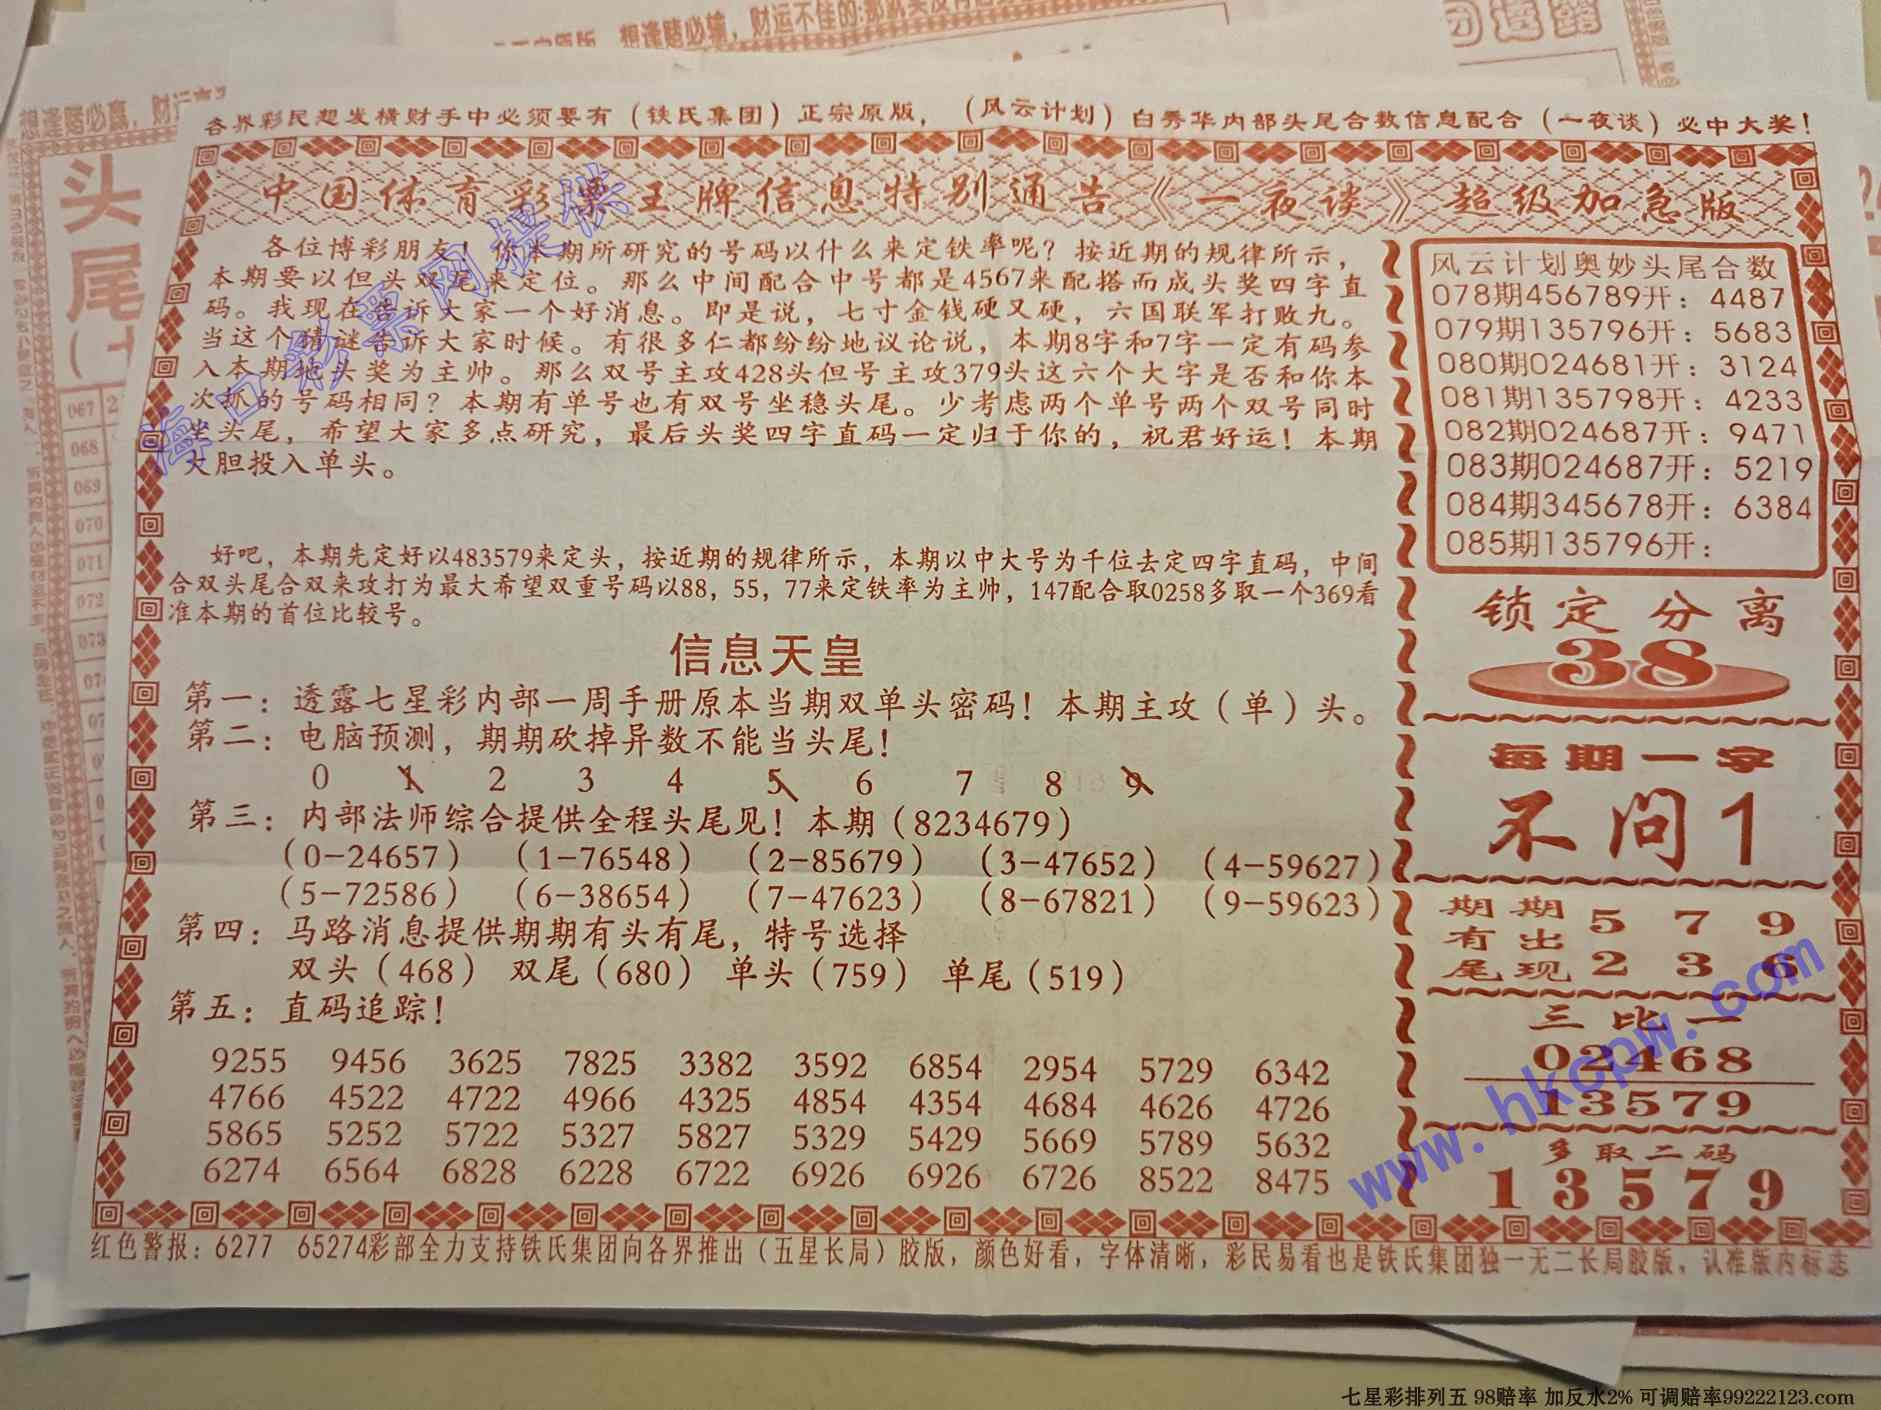 想逢赌必输，财运不佳的:那就
各界彩民想发横财手中必须要有（铁氏集团）正宗原版，（风云计划）白秀华内部头尾合数信息配合（一夜谈）必中大奖！
中国体育彩票王牌信息特别通告《一夜谈》超级加急版
各位博彩朋友！你本期所研究的号码以什么来定铁率呢？按近期的规律所示，
本期要以但头双尾来定位。那么中间配合中号都是4567来配搭而成头奖四字直
码。我现在告诉大家一个好消息。即是说，七寸金钱硬又硬，六国联军打败九。
当这个猜谜告诉大家时候。有很多仁都纷纷地议论说，本期8字和7字一定有码参
入本期地头奖为主帅。那么双号主攻428头但号主攻379头这六个大字是否和你本
次抓的号码相同？本期有单号也有双号坐稳头尾。少考虑两个单号两个双号同时
坐头尾，希望大家多点研究，最后头奖四字直码一定归于你的，祝君好运！本期
大胆投入单头。
好吧，本期先定好以483579来定头，按近期的规律所示，本期以中大号为千位去定四字直码，中间
合双头尾合双来攻打为最大希望双重号码以88，55，77来定铁率为主帅，147配合取0258多取一个369看
准本期的首位比较号。
信息天皇
第一：透露七星彩内部一周手册原本当期双单头密码！本期主攻（单）头。
第二：电脑预测，期期砍掉异数不能当头尾！
0 1 2 3 4 5 6 7 8 9
第三：内部法师综合提供全程头尾见！本期（8234679）
（0-24657）（1-76548）（2-85679）（3-47652）（4-59627）
（5-72586）（6-38654）（7-47623）（8-67821）（9-59623）
第四：马路消息提供期期有头有尾，特号选择
双头（468） 双尾（680） 单头（759） 单尾（519）
第五：直码追踪！
9255 9456 3625 7825 3382 3592 6854 2954 5729 6342
4766 4522 4722 4966 4325 4854 4354 4684 4626 4726
5865 5252 5722 5327 5827 5329 5429 5669 5789 5632
6274 6564 6828 6228 6722 6926 6926 6726 8522 8475
风云计划奥妙头尾合数
078期456789开：4487
079期135796开：5683
080期024681开：3124
081期135798开：4233
082期024687开：9471
083期024687开：5219
084期345678开：6384
085期135796开：
锁定分离
38
每期一字
不问1
期期 5 7 9
有出
尾现 2 3 6
三比一
02468
13579
多取二码
13579
红色警报：6277 65274彩部全力支持铁氏集团向各界推出（五星长局）胶版，颜色好看，字体清晰，彩民易看也是铁氏集团独一无二长局胶版，认准版内标志
想逢赌必赢，财运
头
尾
067
068
069
070
071
072
073
海口彩票网提供
www.hkcpw.com
七星彩排列五 98赔率 加反水2% 可调赔率99222123.com